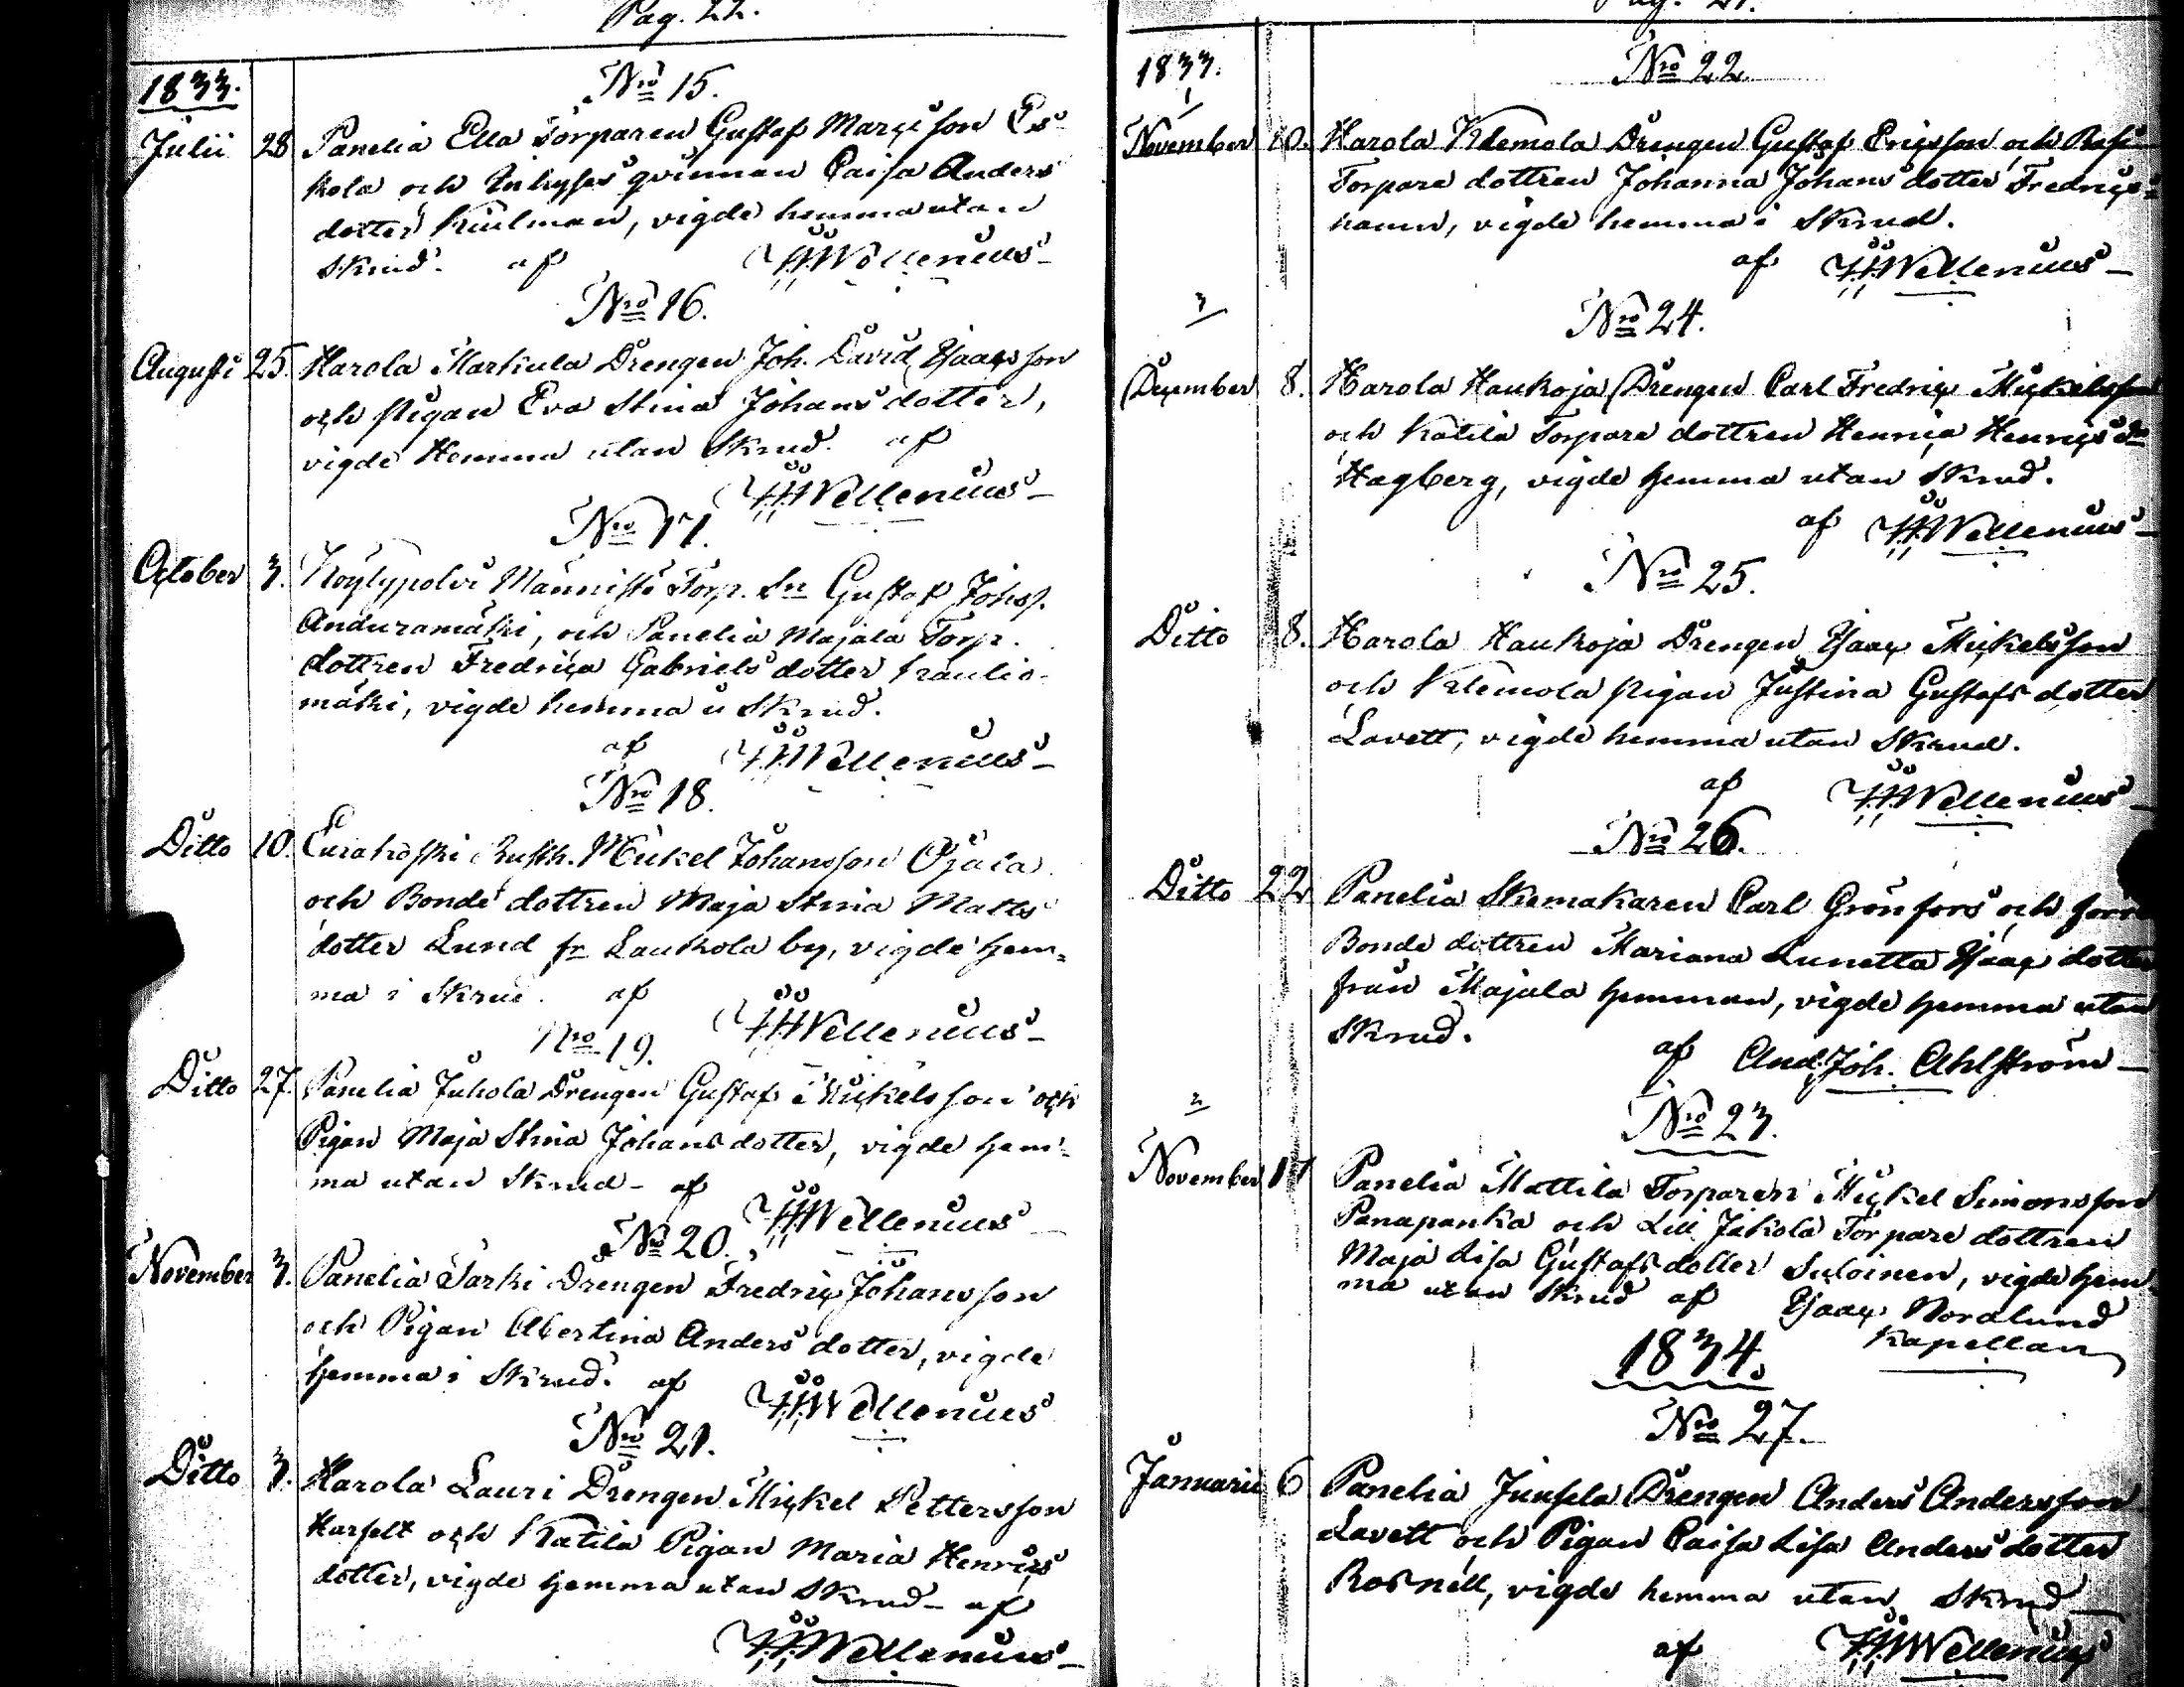 Pag. 22.
1833.
No 15.
Julii 28 Panelia Ella Torparen Gustaf Marcisson Es-
kola och Inhyses qvinnan Caisa Anders
dotter Kulman, vigde hemma utan
Skrud. af HHWellenius
No 16.
Augusti 25. Harola Markula Drengen Joh. David Isaacsson
och pigan Eva Stina Johansdotter,
vigde Hemma utan Skrud. af
HHWellenius
No 17.
October 3. Köylypolvi Männistö Torp. Sn Gustaf Johss.
Anduramäki, och Panelia Majala Torp.
dottren Fredrica Gabrielsdotter
mäki, vigde hemma i Skrud.
af HHWellenius
No 18.
Ditto 10. Eurakoski Rusth. Mickel Johansson Ojala
och Bonde dottren Maja Stina Matts
dotter Lund fr Laukola by, vigde hem-
ma i Skrud. af HHWellenius
No 19.
Ditto 27. Panelia Juhola Drengen Gustaf Mickelsson och
Pigan Maja Stina Johansdotter, vigde hem-
ma utan Skrud - af HHWellenius
No 20.
November 3. Panelia Sarki Drengen Fredric Johansson
och Pigan Albertina Andersdotter, vigde
hemma i Skrud. af HHWellenius
No 21.
Ditto 3. Harola Lauri Drengen Mickel Pettersson
Harfelt och Katila Pigan Maria Henrics
dotter, vigde hemma utan Skrud - af
HHWellenius
1833.
No 22
November 10. Harola Klemola Drengen Gustaf Ericsson och
Torpare dottren Johanna Johansdotter Fredrics-
hamn, vigde hemma i Skrud.
af HHWellenius
3
No 24.
December 8. Harola Haukoja Drengen Carl Fredric Mickelsson
och Katila Torpare dottren Henrica Henrics dr
Hagberg, vigde hemma utan Skrud.
af HHWellenius
No 25.
Ditto 8. Harola Haukoja Drengen Isaac Mickelsson
och Klemola pigan Justina Gustafsdotter
Lavett, vigde hemma utan Skrud.
af HHWellenius
No 26.
Ditto 22 Panelia Skomakaren Carl Grönfors och
Bonde dottren Mariana Lunetta Isaacs dotter
från Majala hemman, vigde hemma utan
Skrud. af And. Joh. Ahlström
2
No 23.
November 17 Panelia Mattila Torparen Mickel Simonsson
Panapanka och Lill Jakola Torpare dottren
Maja Lisa Gustafsdotter Suloinen, vigde hem
ma utan Skrud af Isaac Nordlund
Kapellan
1834.
No 27.
Januarii 6 Panelia Juusela Drengen Anders Andersson
Lavett och Pigan Caisa Lisa Andersdotter
Rosnell, vigde hemma utan Skrud
af HHWellenius